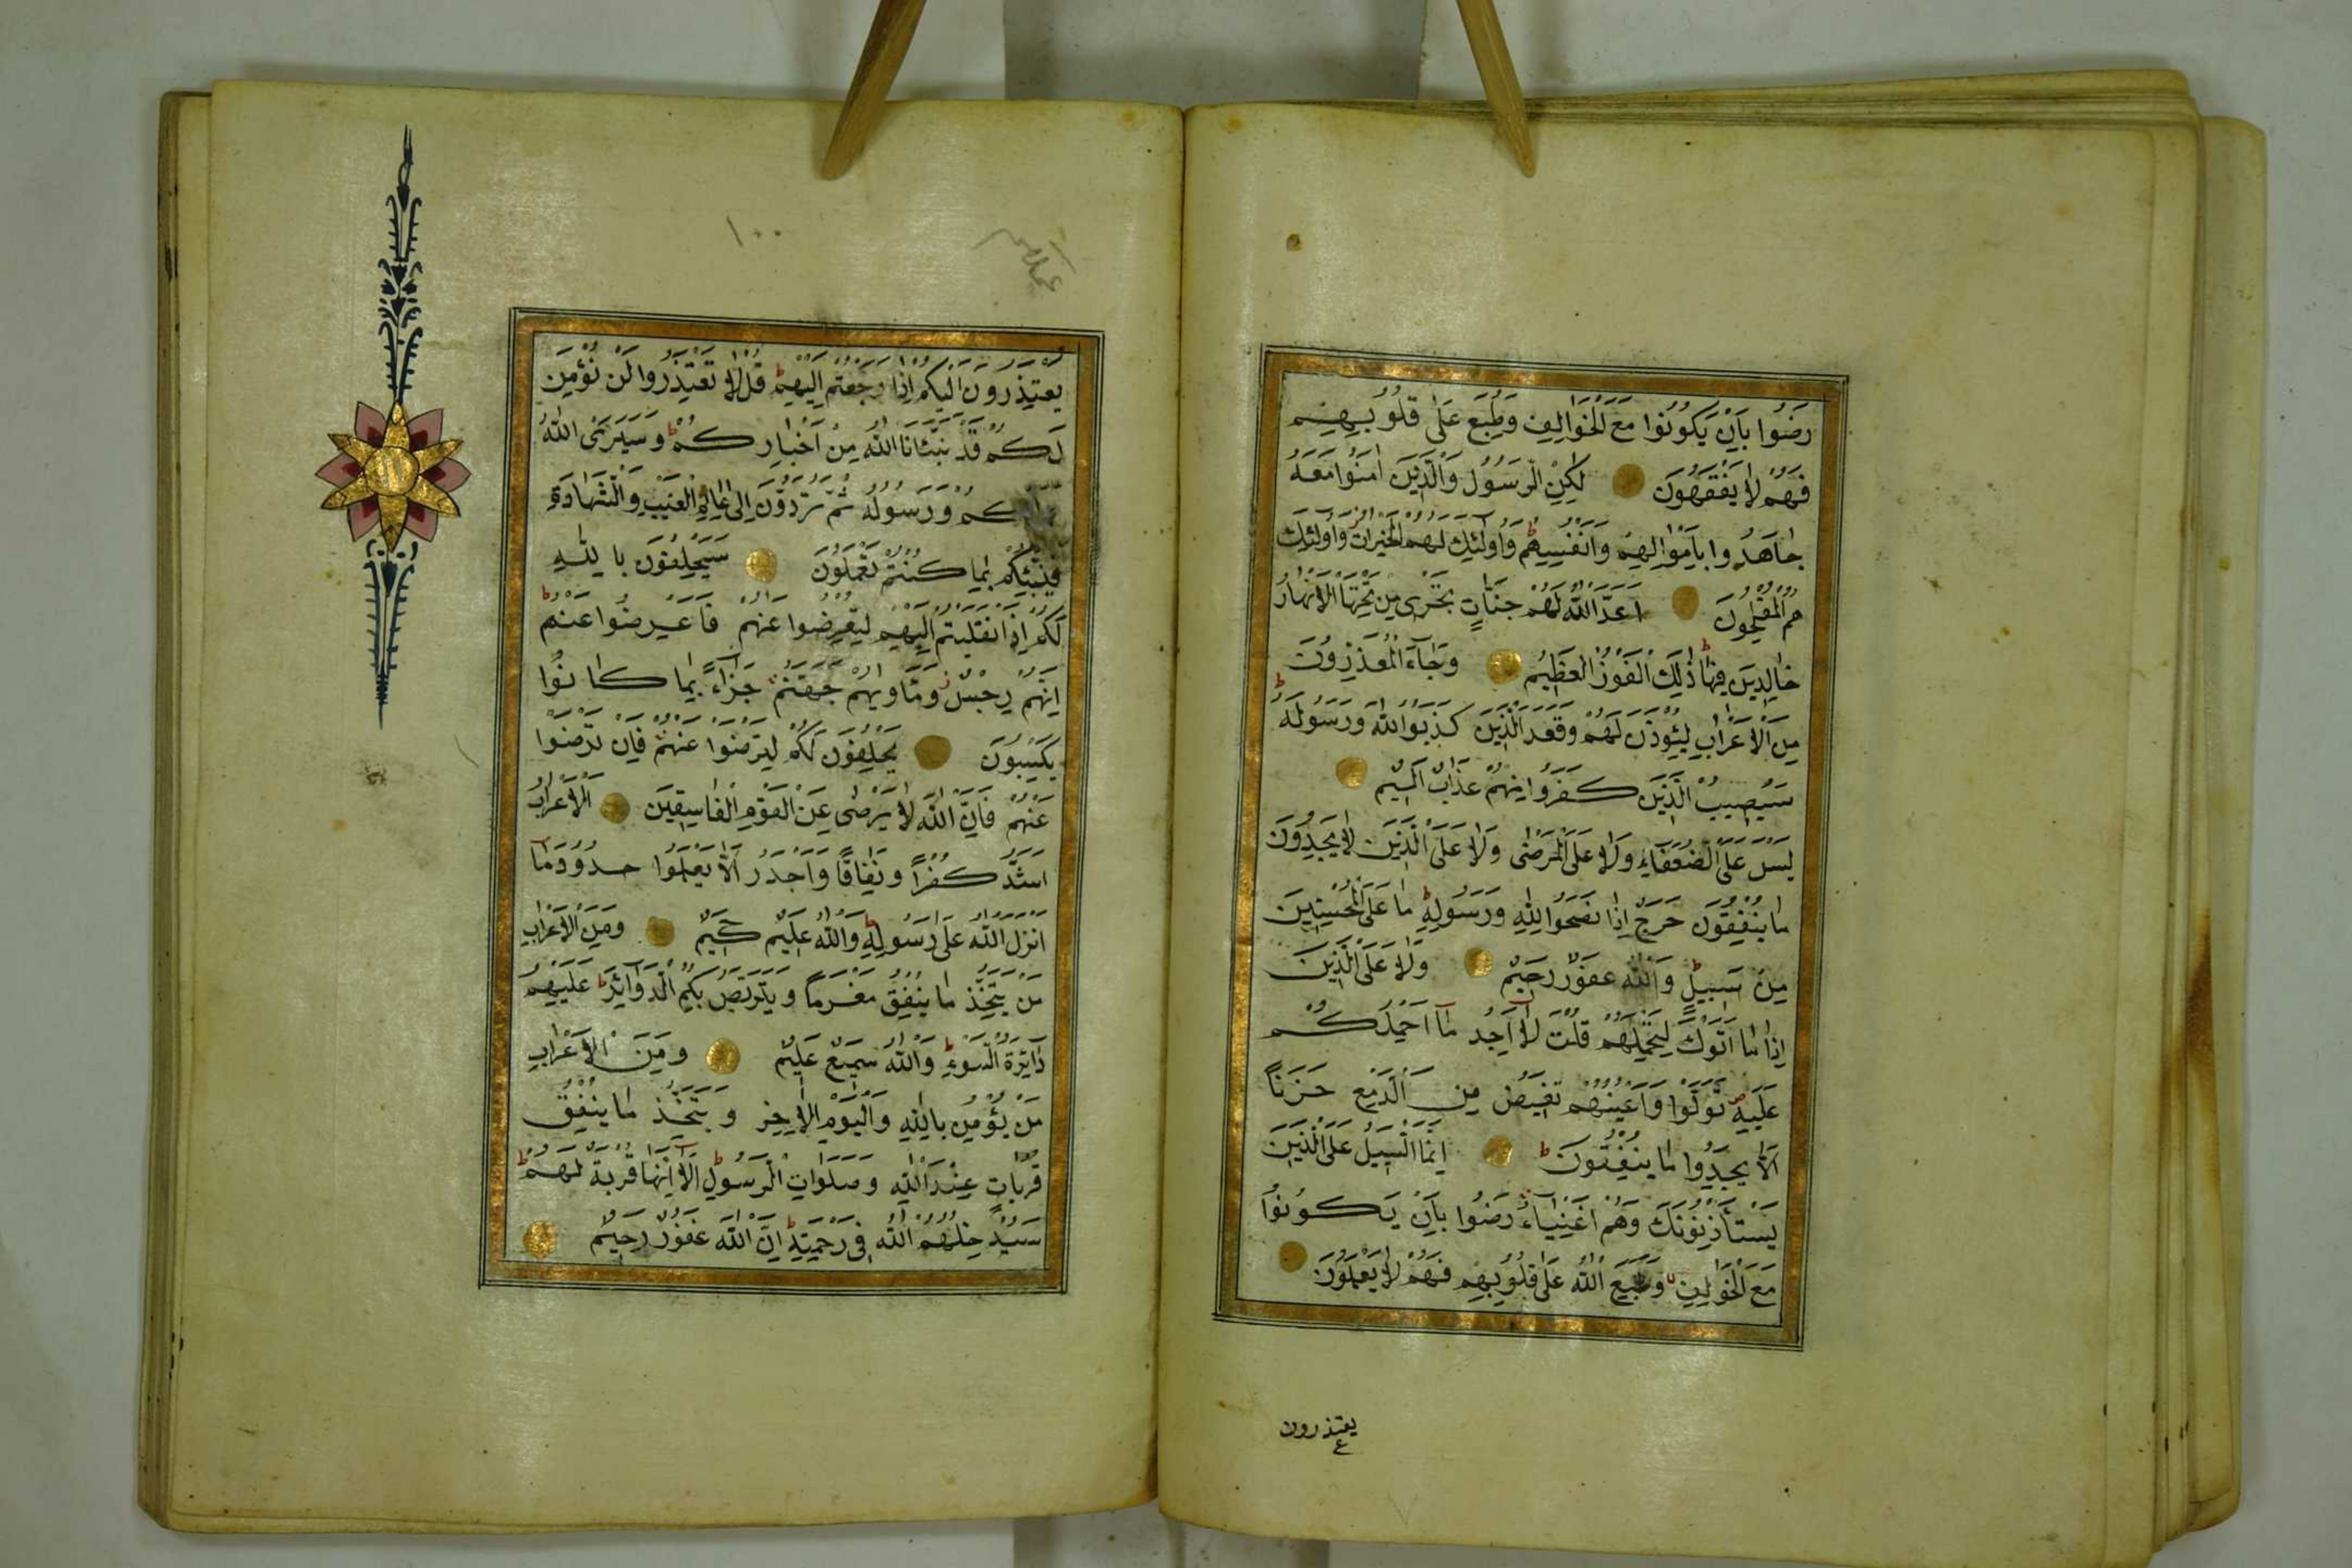 رَضُوا بِاَنْ يَكُونُوا مَعَ الْخَوَالِفِ وَطُبِعَ عَلٰى قُلُوبِهِمْ
فَهُمْ لَا يَفْقَهُونَ لٰكِنِ الرَّسُولُ وَالَّذٖينَ اٰمَنُوا مَعَهُ
جَاهَدُوا بِاَمْوَالِهِمْ وَاَنْفُسِهِمْ ط وَاُولٰئِكَ لَهُمُ الْخَيْرَاتُ وَاُولٰئِكَ
هُمُ الْمُفْلِحُونَ اَعَدَّ اللّٰهُ لَهُمْ جَنَّاتٍ تَجْرٖى مِنْ تَحْتِهَا الْاَنْهَارُ
خَالِدٖينَ فٖيهَا ط ذٰلِكَ الْفَوْزُ الْعَظٖيمُ وَجَاءَ الْمُعَذِّرُونَ
مِنَ الْاَعْرَابِ لِيُؤْذَنَ لَهُمْ وَقَعَدَ الَّذٖينَ كَذَبُوا اللّٰهَ وَرَسُولَهُ ط
سَيُصٖيبُ الَّذٖينَ كَفَرُوا مِنْهُمْ عَذَابٌ اَلٖيمٌ
لَيْسَ عَلَى الضُّعَفَاءِ وَلَا عَلَى الْمَرْضٰى وَلَا عَلَى الَّذٖينَ لَا يَجِدُونَ
مَا يُنْفِقُونَ حَرَجٌ اِذَا نَصَحُوا لِلّٰهِ وَرَسُولِهٖ ط مَا عَلَى الْمُحْسِنٖينَ
مِنْ سَبٖيلٍ ط وَاللّٰهُ غَفُورٌ رَحٖيمٌ وَلَا عَلَى الَّذٖينَ
اِذَا مَا اَتَوْكَ لِتَحْمِلَهُمْ قُلْتَ لَا اَجِدُ مَا اَحْمِلُكُمْ
عَلَيْهِ ص تَوَلَّوْا وَاَعْيُنُهُمْ تَفٖيضُ مِنَ الدَّمْعِ حَزَنًا
اَلَّا يَجِدُوا مَا يُنْفِقُونَ ط اِنَّمَا السَّبٖيلُ عَلَى الَّذٖينَ
يَسْتَأْذِنُونَكَ وَهُمْ اَغْنِيَاءُ رَضُوا بِاَنْ يَكُونُوا
مَعَ الْخَوَالِفِ وَطَبَعَ اللّٰهُ عَلٰى قُلُوبِهِمْ فَهُمْ لَا يَعْلَمُونَ
يعتذرون
١٠٠
يَعْتَذِرُونَ اِلَيْكُمْ اِذَا رَجَعْتُمْ اِلَيْهِمْ ط قُلْ لَا تَعْتَذِرُوا لَنْ نُؤْمِنَ
لَكُمْ قَدْ نَبَّاَنَا اللّٰهُ مِنْ اَخْبَارِكُمْ ط وَسَيَرَى اللّٰهُ
وَرَسُولُهُ ثُمَّ تُرَدُّونَ اِلٰى عَالِمِ الْغَيْبِ وَالشَّهَادَةِ
فَيُنَبِّئُكُمْ بِمَا كُنْتُمْ تَعْمَلُونَ سَيَحْلِفُونَ بِاللّٰهِ
لَكُمْ اِذَا انْقَلَبْتُمْ اِلَيْهِمْ لِتُعْرِضُوا عَنْهُمْ فَاَعْرِضُوا عَنْهُمْ ط
اِنَّهُمْ رِجْسٌ وَمَاْوٰيهُمْ جَهَنَّمُ جَزَاءً بِمَا كَانُوا
يَكْسِبُونَ يَحْلِفُونَ لَكُمْ لِتَرْضَوْا عَنْهُمْ فَاِنْ تَرْضَوْا
عَنْهُمْ فَاِنَّ اللّٰهَ لَا يَرْضٰى عَنِ الْقَوْمِ الْفَاسِقٖينَ اَلْاَعْرَابُ
اَشَدُّ كُفْرًا وَنِفَاقًا وَاَجْدَرُ اَلَّا يَعْلَمُوا حُدُودَ مَا
اَنْزَلَ اللّٰهُ عَلٰى رَسُولِهٖ ط وَاللّٰهُ عَلٖيمٌ حَكٖيمٌ وَمِنَ الْاَعْرَابِ
مَنْ يَتَّخِذُ مَا يُنْفِقُ مَغْرَمًا وَيَتَرَبَّصُ بِكُمُ الدَّوَائِرَ ط عَلَيْهِمْ
دَائِرَةُ السَّوْءِ ط وَاللّٰهُ سَمٖيعٌ عَلٖيمٌ وَمِنَ الْاَعْرَابِ
مَنْ يُؤْمِنُ بِاللّٰهِ وَالْيَوْمِ الْاٰخِرِ وَيَتَّخِذُ مَا يُنْفِقُ
قُرُبَاتٍ عِنْدَ اللّٰهِ وَصَلَوَاتِ الرَّسُولِ ط اَلَا اِنَّهَا قُرْبَةٌ لَهُمْ ط
سَيُدْخِلُهُمُ اللّٰهُ فٖى رَحْمَتِهٖ ط اِنَّ اللّٰهَ غَفُورٌ رَحٖيمٌ